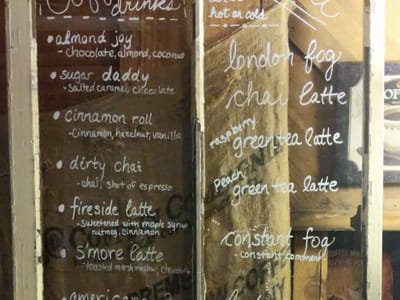 drinks
• almond joy
- chocolate, almond, coconut
• sugar daddy
- salted caramel, chocolate
• cinnamon roll
- cinnamon, hazelnut, vanilla
• dirty chai
- chai, shot of espresso
• fireside latte
- sweetened with maple syrup
nutmeg, cinnamon
• s'more latte
- toasted marshmallow, chocolate
hot or cold
london fog
chai latte
raspberry
green tea latte
peach
green tea latte
constant fog
- constant comment